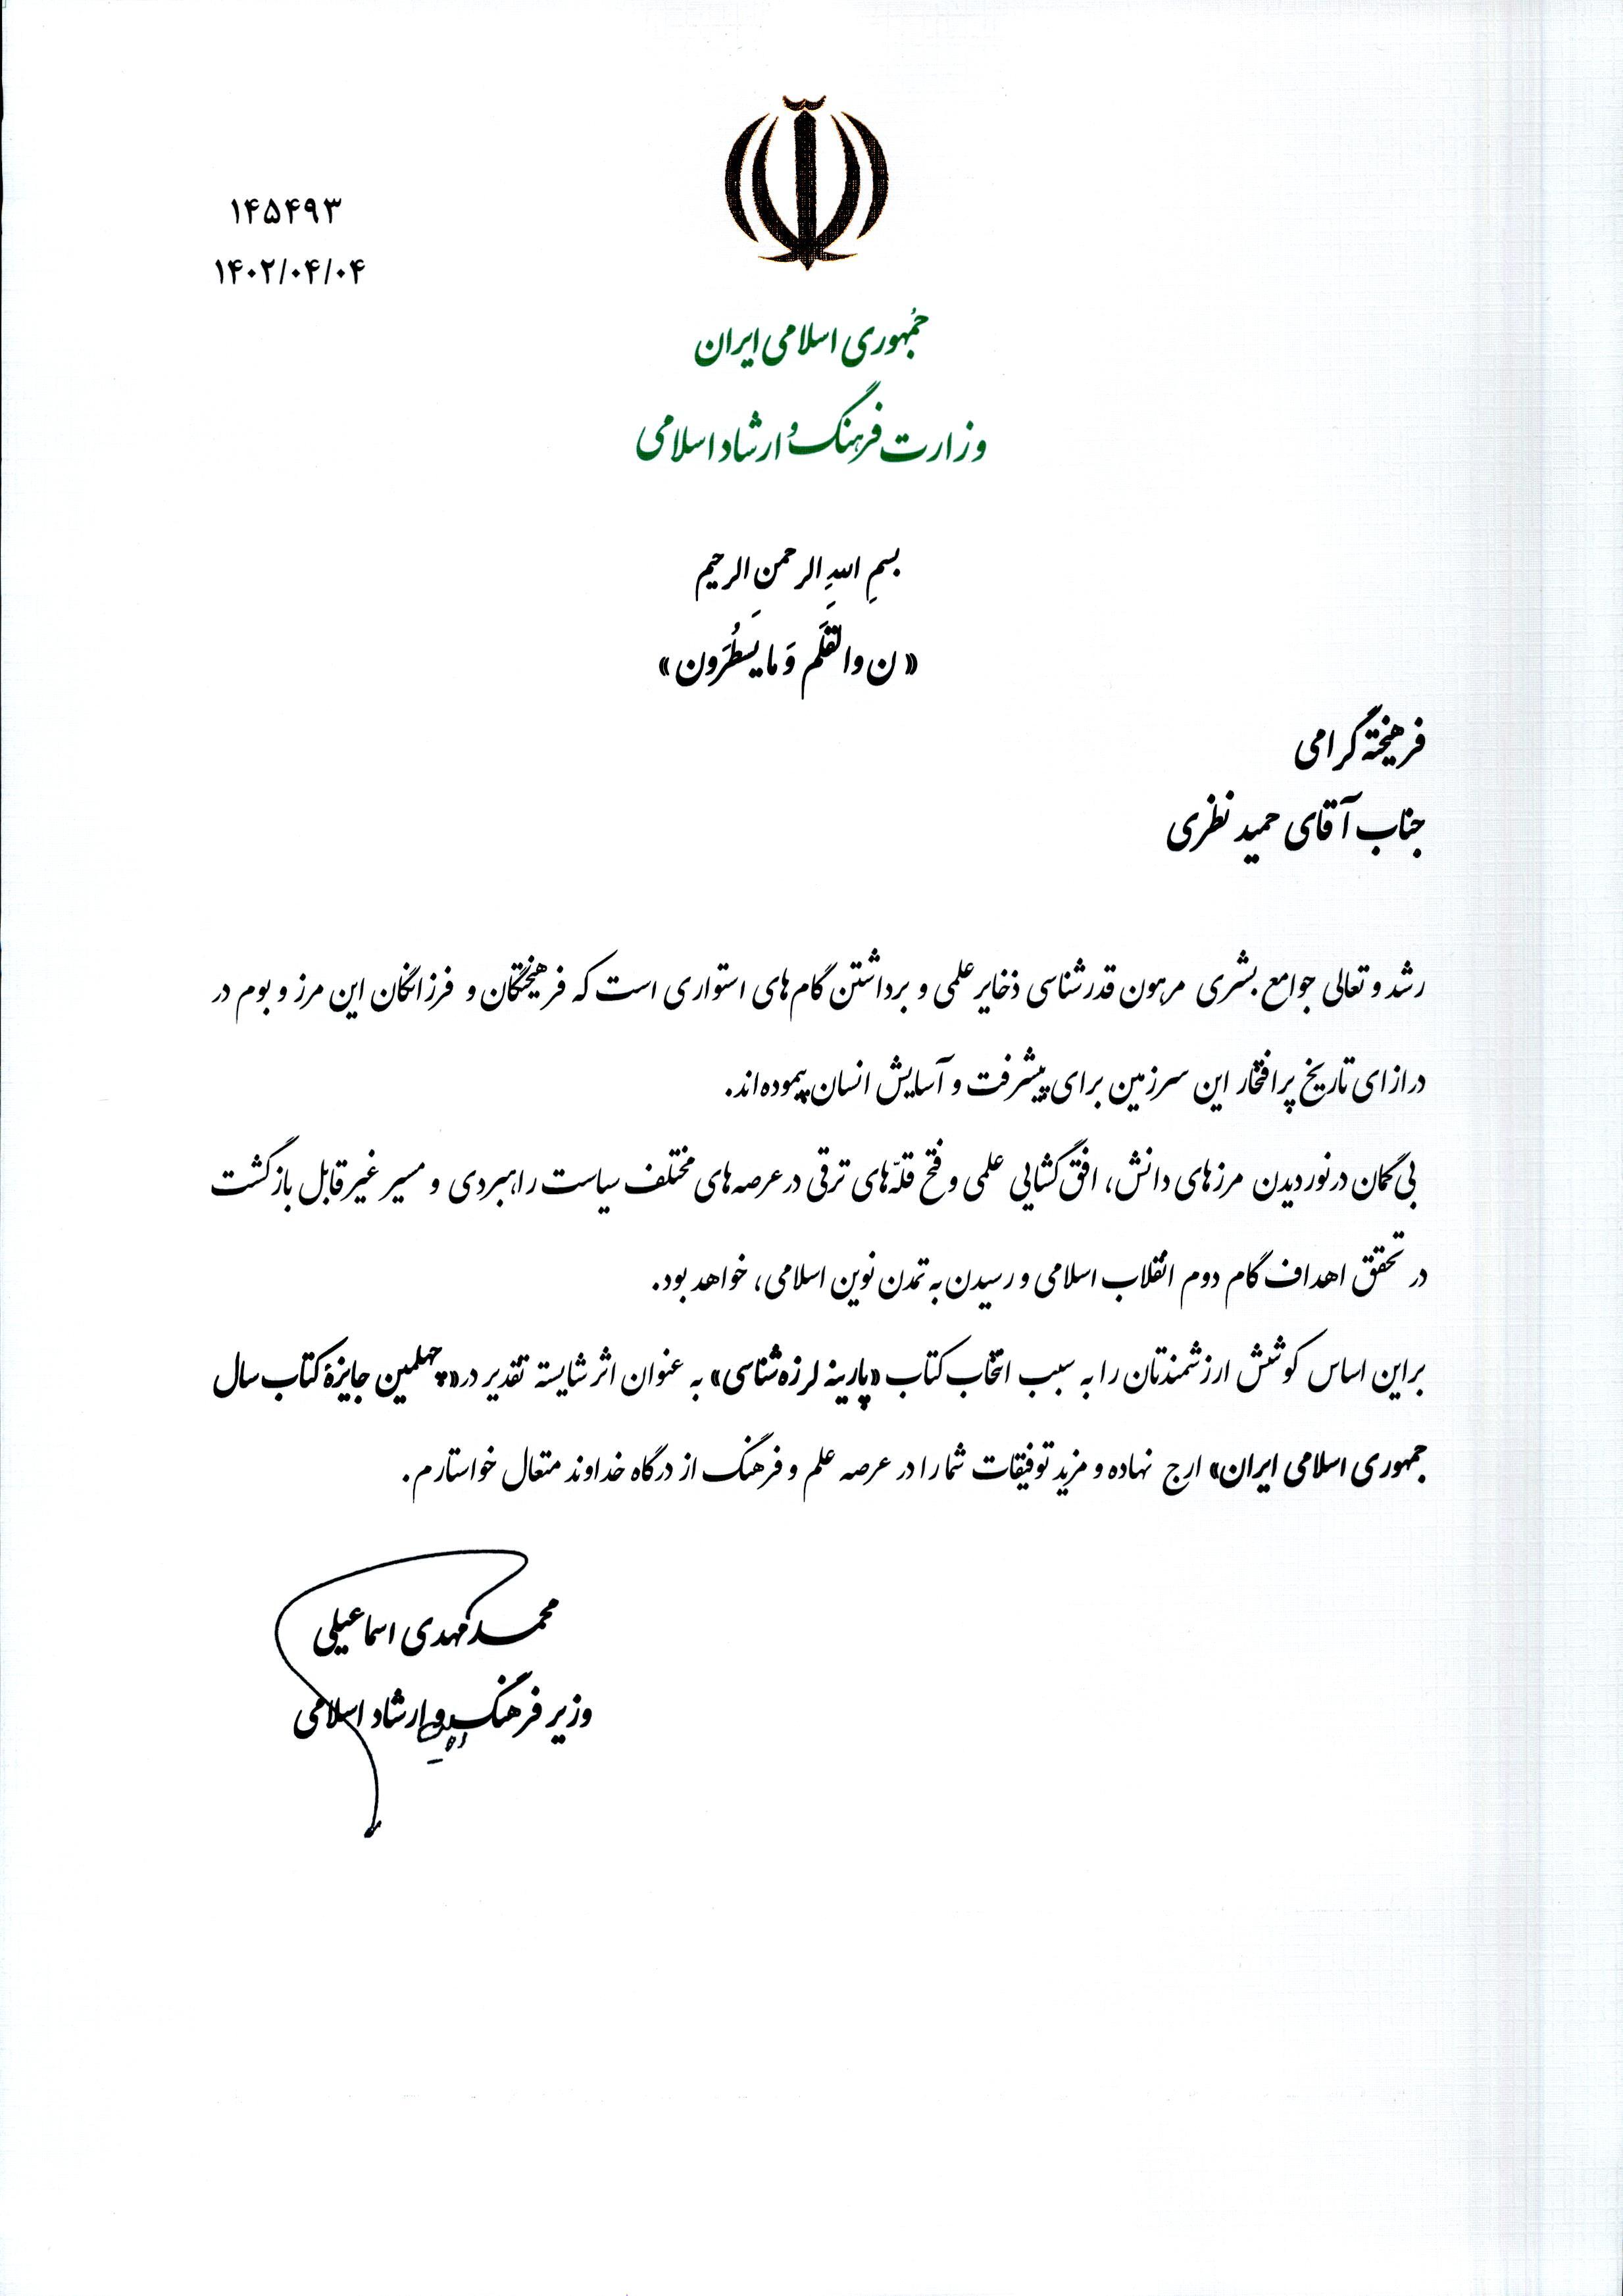 ۱۴۵۴۹۳
۱۴۰۲/۰۴/۰۴
جمهوری اسلامی ایران
وزارت فرهنگ و ارشاد اسلامی
بسمِ اللهِ الرحمنِ الرحیمِ
«ن والقَلَم وَ ما یَسطُرَون»
فرهیختهٔ گرامی
جناب آقای حمید نظری
رشد و تعالی جوامع بشری مرهون قدرشناسی ذخایر علمی و برداشتن گام‌های استواری است که فرهیختگان و فرزانگان این مرز و بوم در
درازای تاریخ پرافتخار این سرزمین برای پیشرفت و آسایش انسان پیموده‌اند.
بی‌گمان درنوردیدن مرزهای دانش، افق‌گشایی علمی و فتح قلّه‌های ترقی در عرصه‌های مختلف سیاست راهبردی و مسیر غیرقابل بازگشت
در تحقق اهداف گام دوم انقلاب اسلامی و رسیدن به تمدن نوین اسلامی، خواهد بود.
براین اساس کوشش ارزشمندتان را به سبب انتخاب کتاب «پارینه لرزه‌شناسی» به عنوان اثر شایسته تقدیر در «چهلمین جایزهٔ کتاب سال
جمهوری اسلامی ایران» ارج نهاده و مزید توفیقات شما را در عرصه علم و فرهنگ از درگاه خداوند متعال خواستارم.
محمدمهدی اسماعیلی
وزیر فرهنگ و ارشاد اسلامی